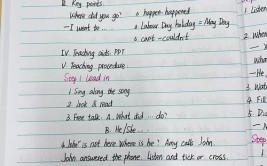 II. Key points
Where did you go? ⋄ happen-happened
— I went to ... ⋄ Labour Day holiday = May Day
⋄ can't - couldn't
IV. Teaching aids: PPT
V. Teaching procedure:
Step 1 Lead in
1. Sing along the song
2. look & read
3. Free talk A. What did ... do?
B. He/She ...
4. John is not here. Where is he? Amy calls John.
John answered the phone. Listen and tick or cross.
1. Listen
2. When
3. Wat
4. Fill
Step